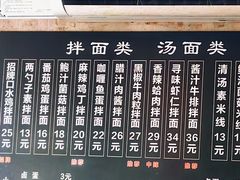 拌面类 汤面类
招牌口水鸡拌面 25元
两勺子素拌面 13元
番茄鸡蛋拌面 16元
鲍汁菌菇拌面 18元
麻辣鸡丁拌面 20元
咖喱鱼蛋拌面 22元
腊汁肉酱拌面 26元
黑椒牛肉粒拌面 27元
香辣蛤肉拌面 29元
寻味虾仁拌面 34元
酱汁牛排拌面 36元
清汤素米线 13元
卤蛋 3元